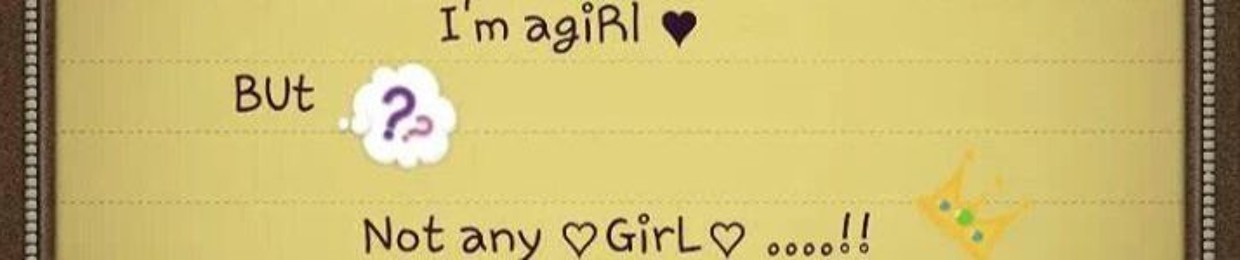 I'm agiRl ♥
BUt ??
Not any ♡GirL♡ ....!!